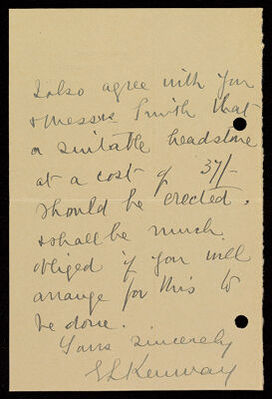 I also agree with you
& Messrs Smith that
a suitable headstone
at a cost of 37/-
should be erected.
& shall be much
obliged if you will
arrange for this to
be done.
Yours sincerely
E L Kenway